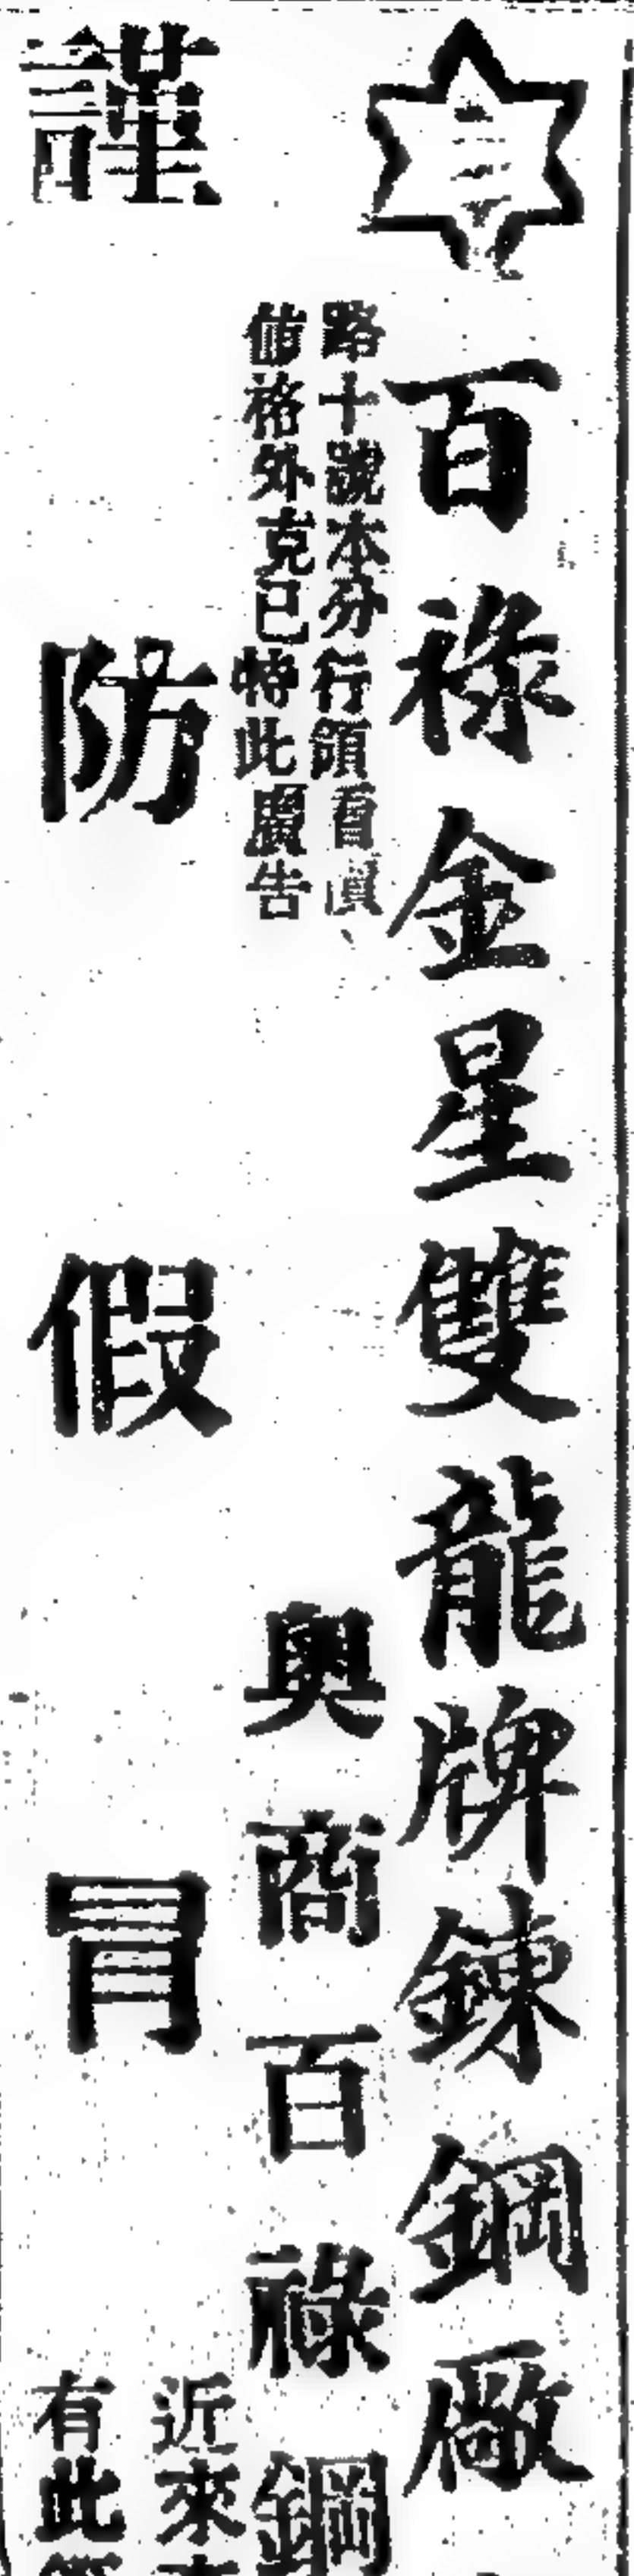 百祿金星雙龍牌鍊鋼廠
路十號本分行領看貨、
價格外克已特此廣告
奧商百祿鋼
謹防假冒
近來
有此